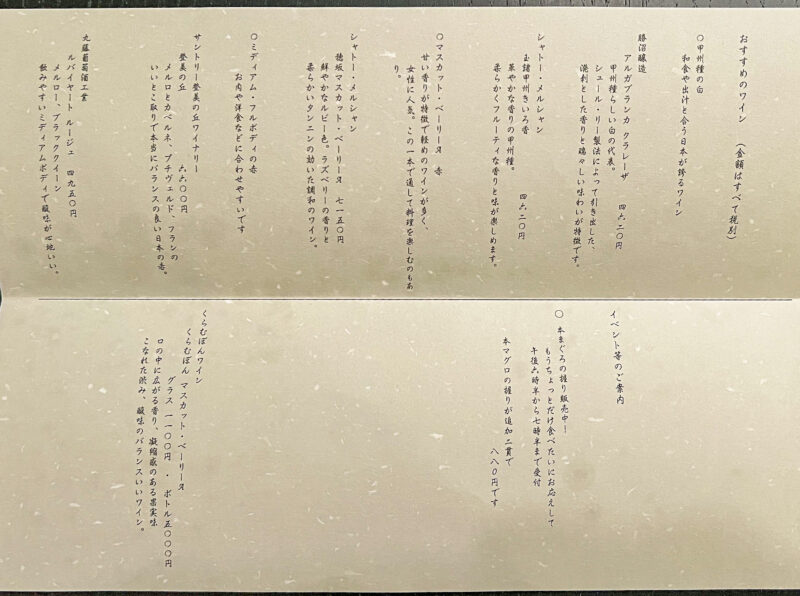 おすすめのワイン （金額はすべて税別）
〇甲州種の白
和食や出汁と合う日本が誇るワイン
勝沼醸造
アルガブランカ クラレーザ 四六二〇円
甲州種らしい白の代表。
シュール・リー製法によって引き出した、
溌剌とした香りと瑞々しい味わいが特徴です。
シャトー・メルシャン
玉諸甲州きいろ香 四六二〇円
華やかな香りの甲州種。
柔らかくフルーティな香りと味が楽しめます。
〇マスカット・ベーリーA 赤
甘い香りが特徴で軽めのワインが多く、
女性に人気。この一本で通して料理を楽しむのもあ
り。
シャトー・メルシャン
穂坂マスカット・ベーリーA 七一五〇円
鮮やかなルビー色。ラズベリーの香りと
柔らかいタンニンの効いた調和のワイン。
〇ミディアム・フルボディの赤
お肉や洋食などに合わせやすいです
サントリー登美の丘ワイナリー
登美の丘 六六〇〇円
メルロとカベルネ、プチヴェルド、フランの
いいとこ取りで本当にバランスの良い日本の赤。
丸藤葡萄酒工業
ルバイヤート ルージュ 四九五〇円
メルロー、ブラッククイーン
飲みやすいミディアムボディで酸味が心地いい。
イベント等のご案内
〇 本まぐろの握り販売中！
もうちょっとだけ食べたいにお応えして
午後六時半から七時半まで受付
本マグロの握りが追加二貫で
八八〇円です
くらむぼんワイン
くらむぼん マスカット・ベーリーA
グラス 一一〇〇円 ・ ボトル五〇〇〇円
口の中に広がる香り、凝縮感のある果実味
こなれた渋み、酸味のバランスいいワイン。